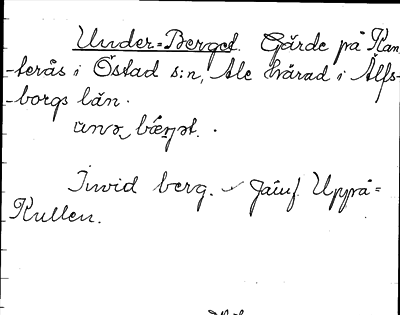 Under-Berget. Gärde på Kan-
-terås i Östad s:n, Ale härad i Älfs-
-borgs län.
Invid berg. – Jämf. Uppå-
Kullen.